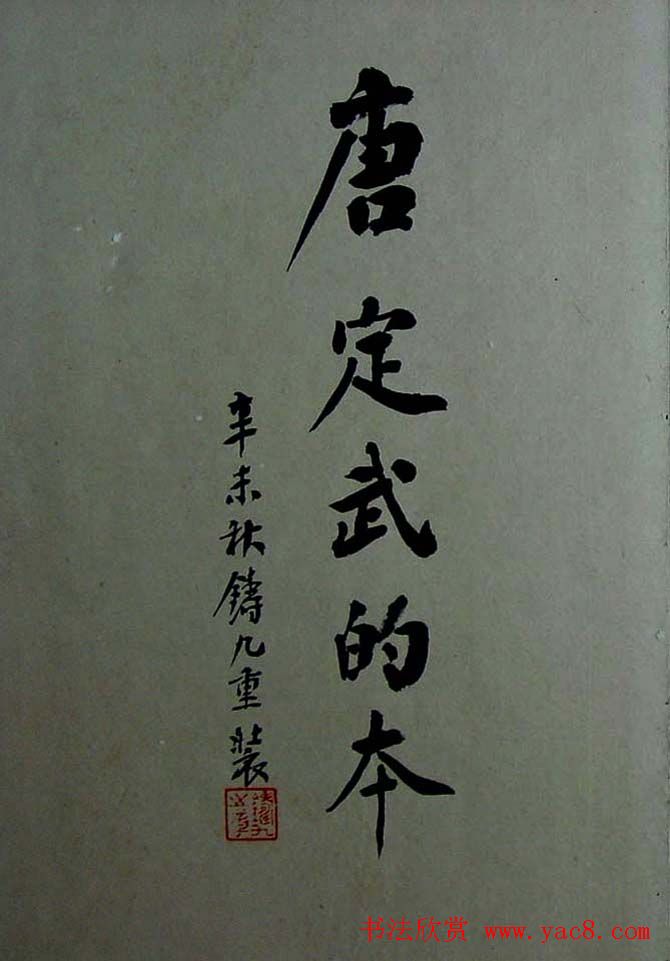 唐定武的本
辛未秋鑄九重裝
书法欣赏 www.yac8.com